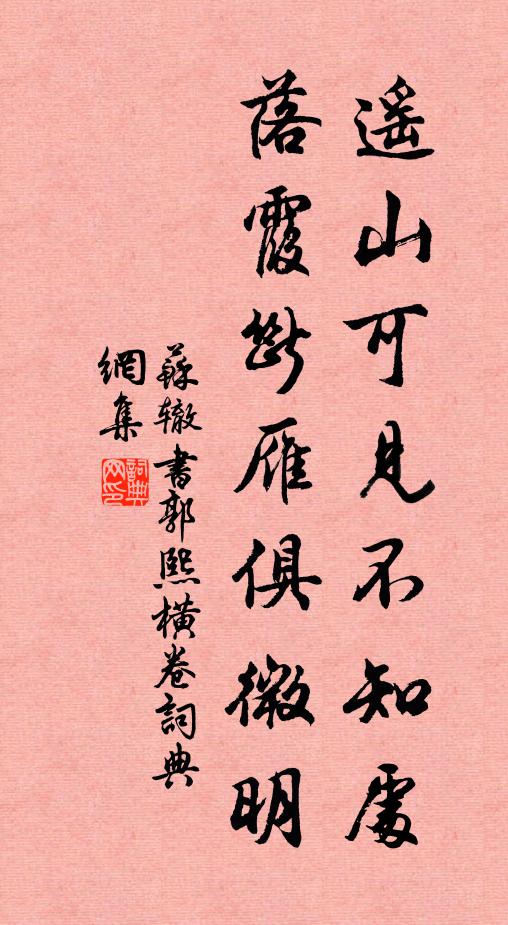 遥山可見不知處
落霞斷雁俱微明
蘇轍書郭熙橫卷詞典
網集
詞典网印